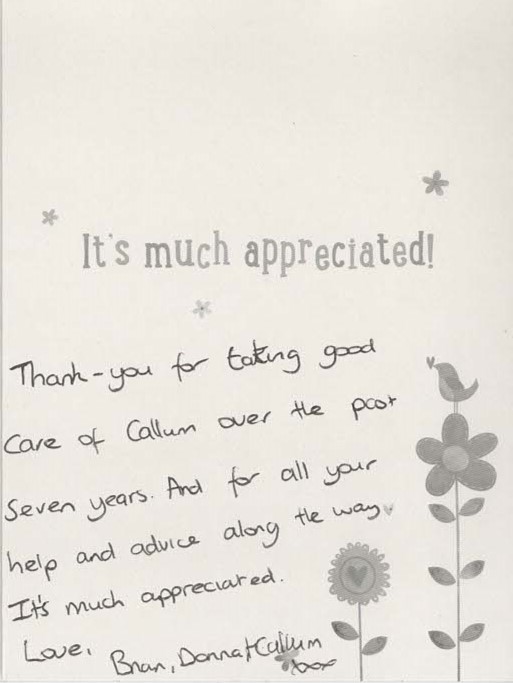 It's much appreciated!
Thank-you for taking good
care of Callum over the past
Seven years. And for all your
help and advice along the way
It's much appreciated.
Love,
Brian, Donna + Callum
xoox